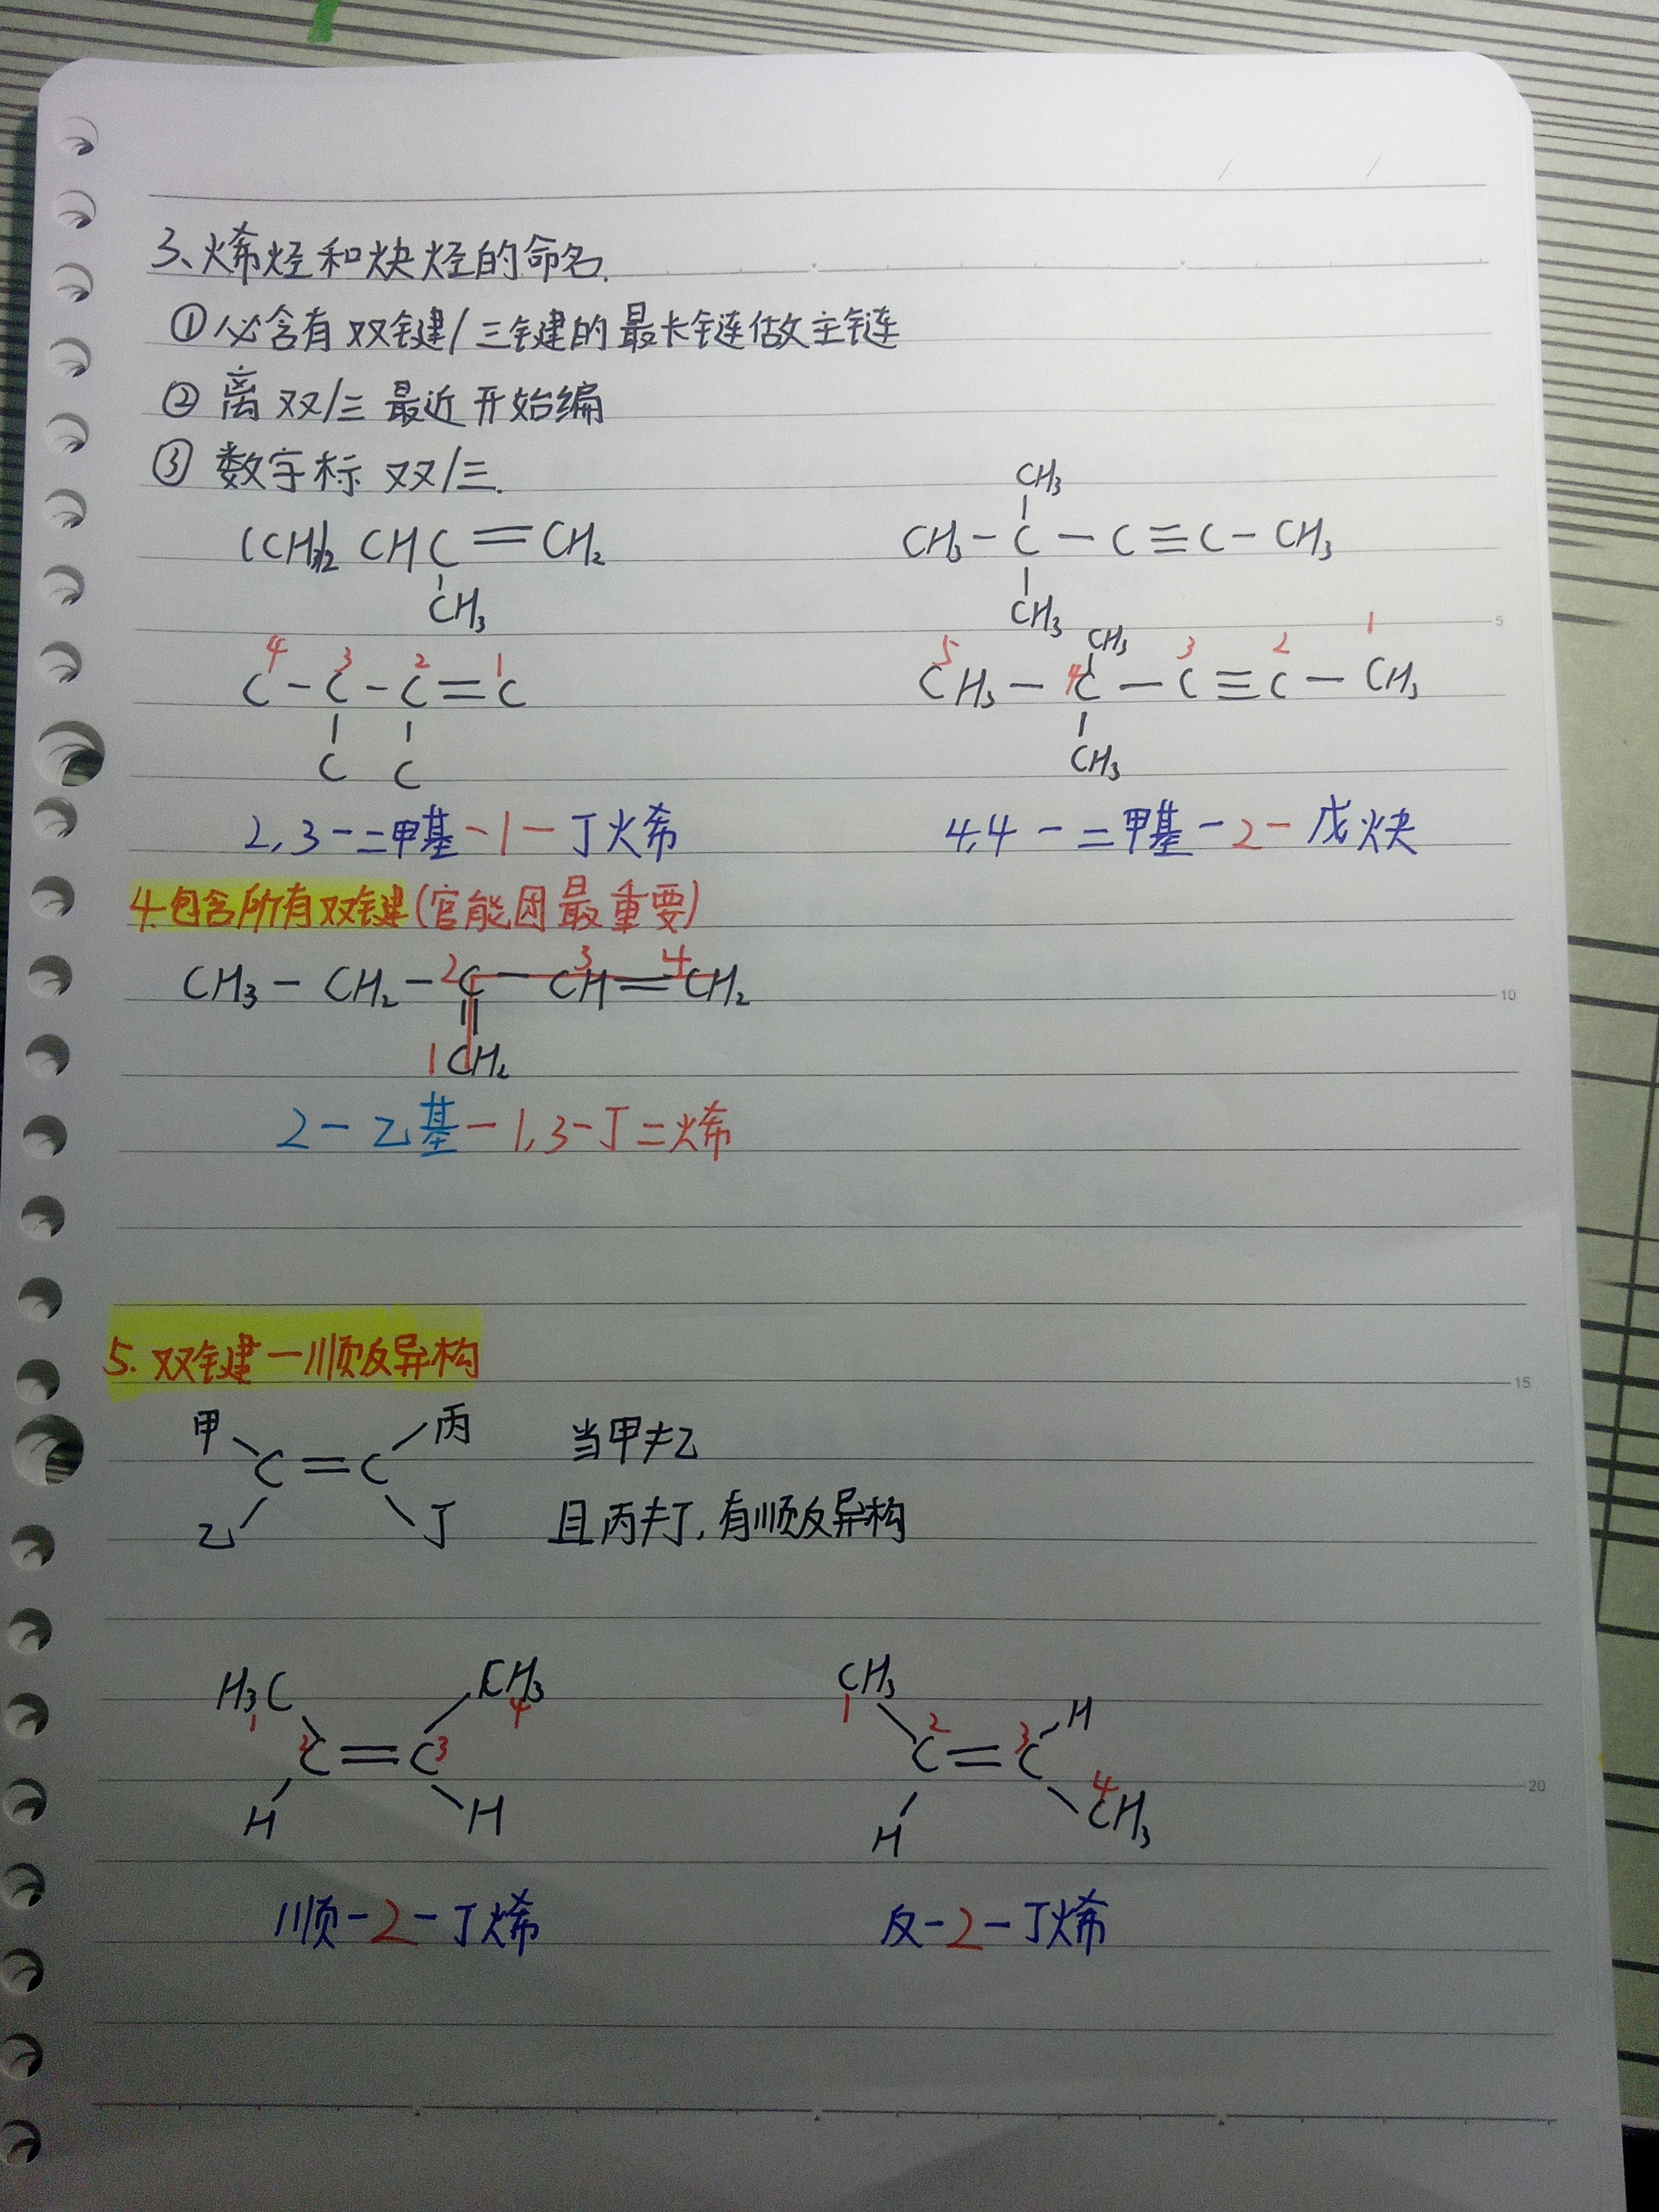 3、烯烃和炔烃的命名.
①必含有双键/三键的最长链做主链
②离双/三最近开始编
③数字标双/三.
(CH3)2CHC=CH2
CH3
CH3
CH3-C-C≡C-CH3
CH3
4 3 2 1
C-C-C=C
C C
CH3
5 4 3 2 1
CH3-C-C≡C-CH3
CH3
2,3-二甲基-1-丁烯
4,4-二甲基-2-戊炔
4.包含所有双键(官能团最重要)
2 3 4
CH3-CH2-C-CH=CH2
1CH2
2-乙基-1,3-丁二烯
5.双键—顺反异构
甲 丙
C=C
乙 丁
当甲≠乙
且丙≠丁,有顺反异构
H3C CH3
1 4
2C=C3
H H
CH3 H
1 2 3
C=C
4
H CH3
顺-2-丁烯
反-2-丁烯
5
10
15
20